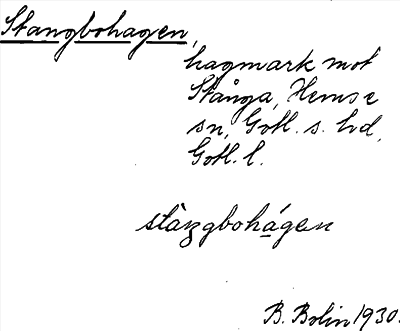 Stangbohagen,
hagmark mot
Stånga, Hemse
sn, Gotl. s. hd,
Gotl. l.
stàŋgbohágen
B. Bolin 1930.